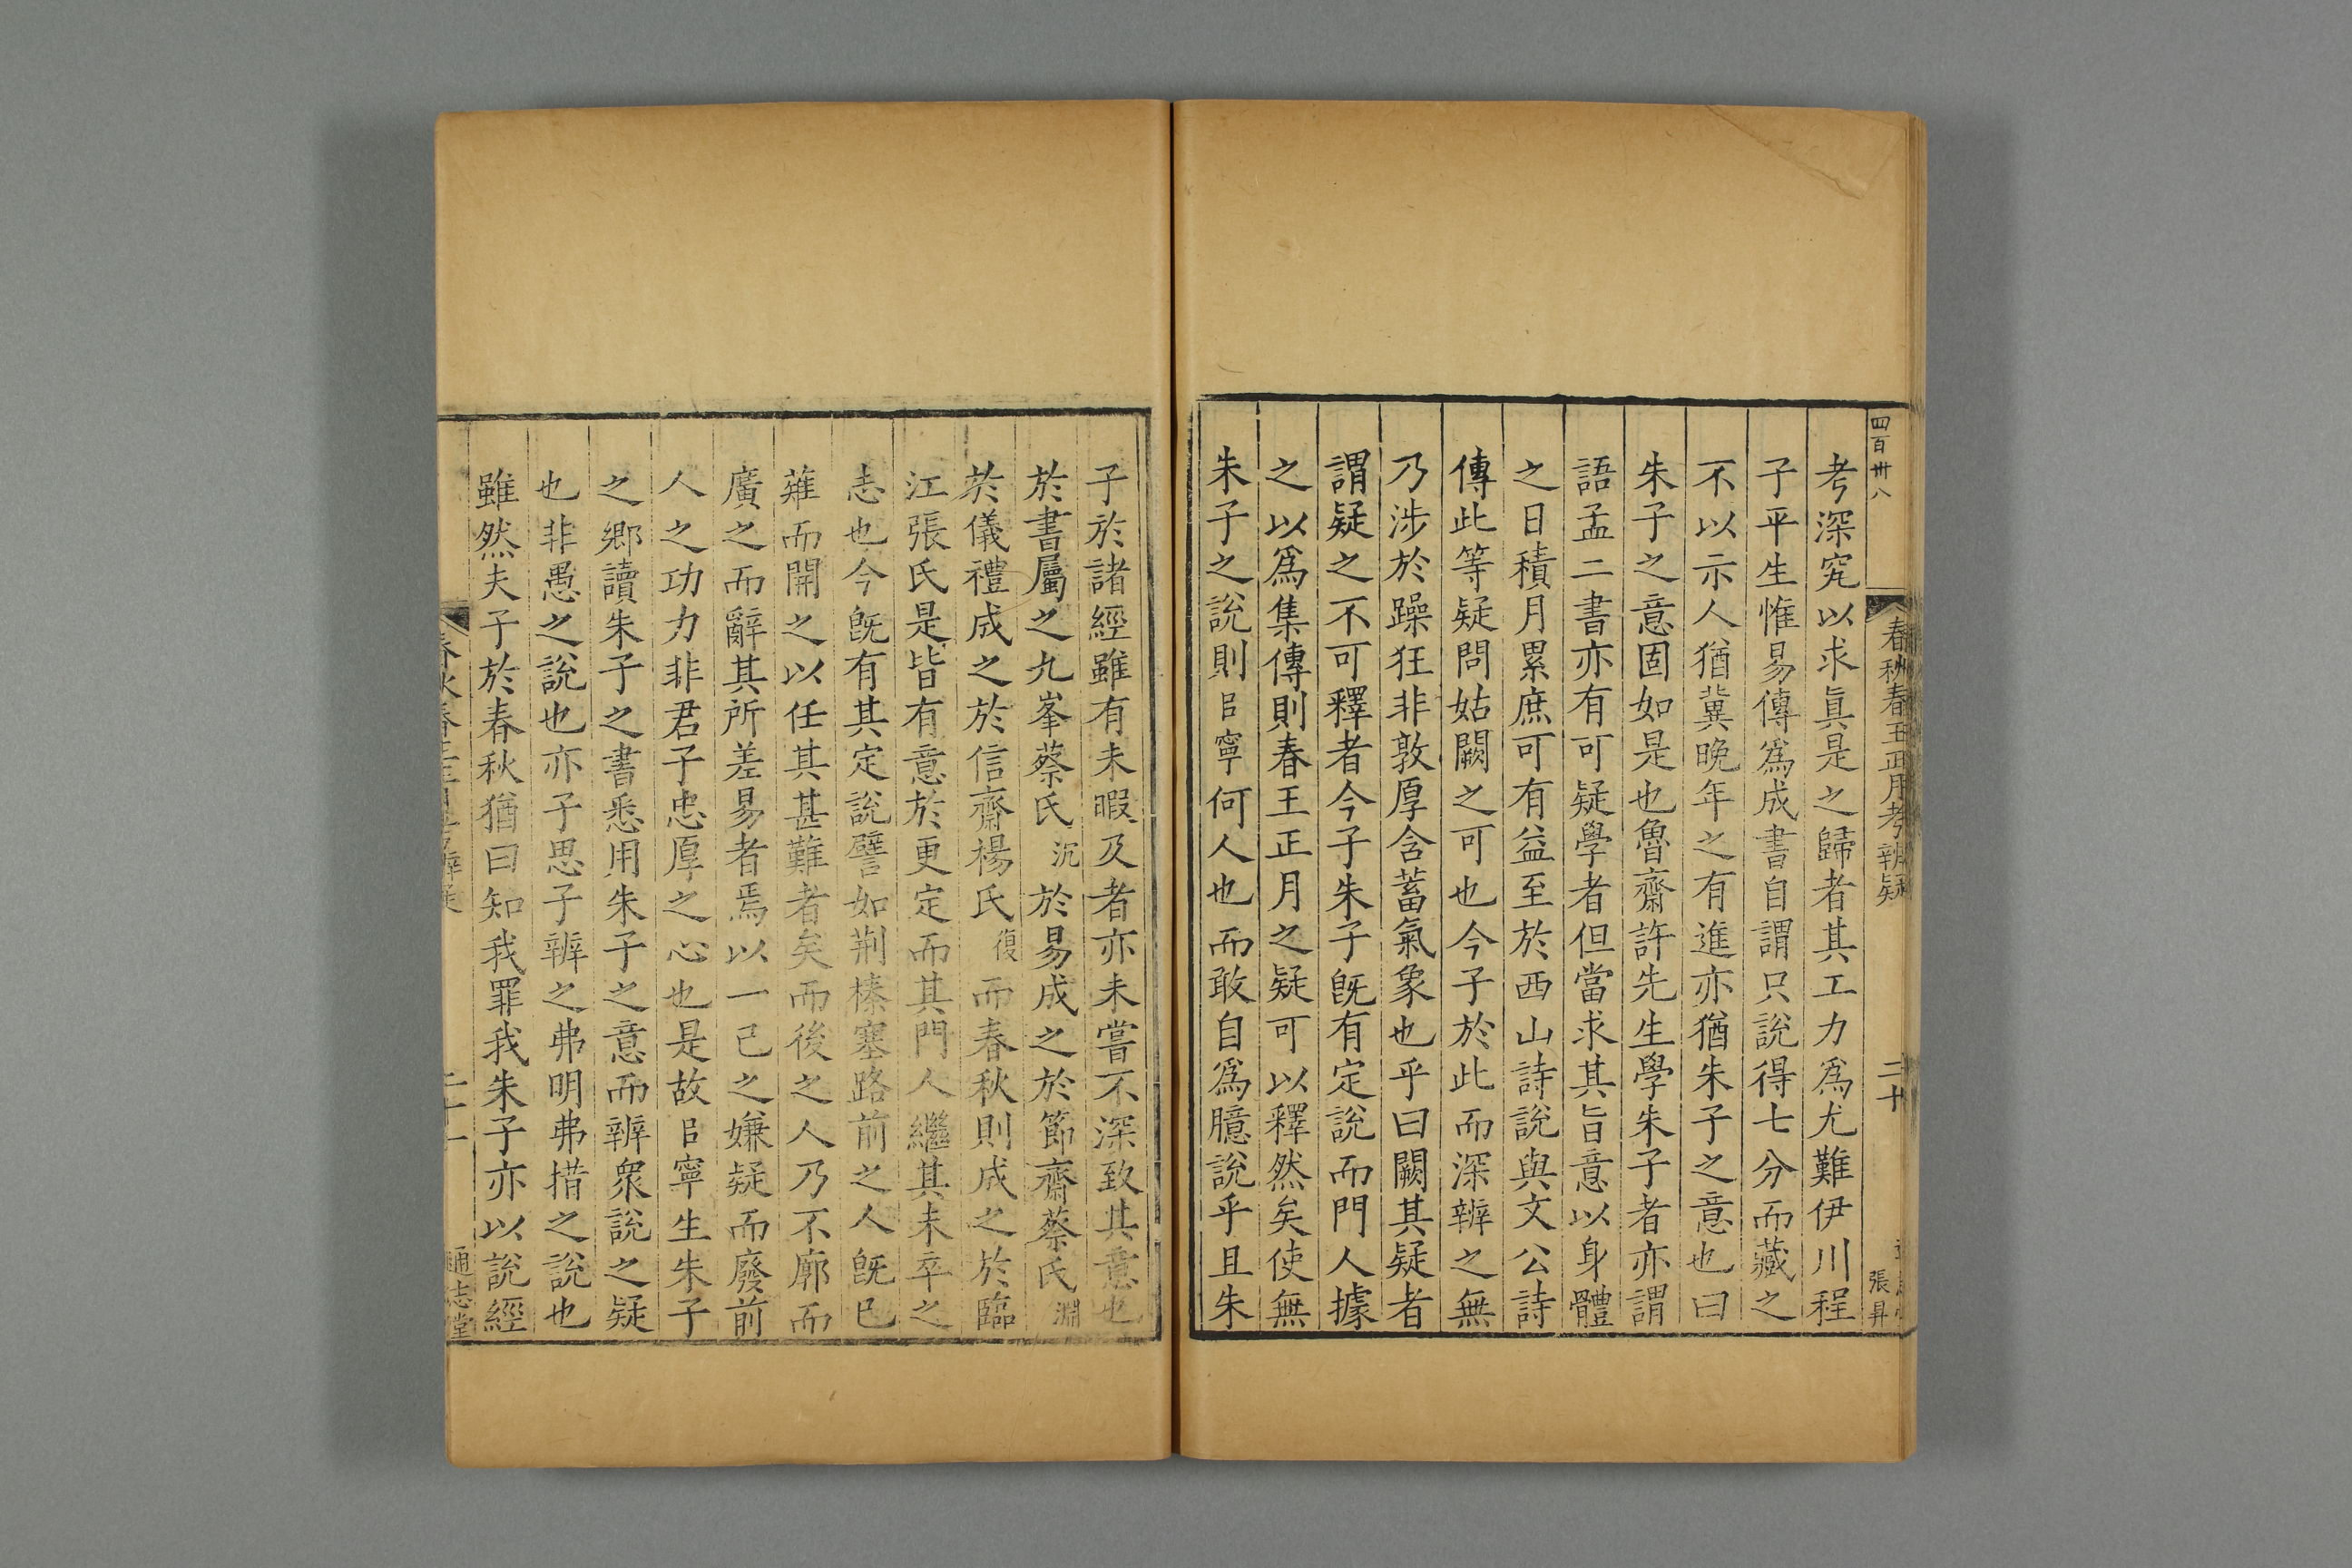 四百卅八
春秋春王正月考辨疑
二十
張昇
考深究以求眞是之歸者其工力爲尤難伊川程
子平生惟易傳爲成書自謂只說得七分而藏之
不以示人猶冀晚年之有進亦猶朱子之意也曰
朱子之意固如是也魯齋許先生學朱子者亦謂
語孟二書亦有可疑學者但當求其旨意以身體
之日積月累庶可有益至於西山詩說與文公詩
傳此等疑問姑闕之可也今子於此而深辨之無
乃涉於躁狂非敦厚含蓄氣象也乎曰闕其疑者
謂疑之不可釋者今子朱子旣有定說而門人據
之以爲集傳則春王正月之疑可以釋然矣使無
朱子之說則㠯寧何人也而敢自爲臆說乎且朱
子於諸經雖有未暇及者亦未嘗不深致其意也
於書屬之九峯蔡氏沉於易成之於節齋蔡氏淵
於儀禮成之於信齋楊氏復而春秋則成之於臨
江張氏是皆有意於更定而其門人繼其未卒之
志也今旣有其定說譬如荆榛塞路前之人旣已
薙而開之以任其甚難者矣而後之人乃不廓而
廣之而辭其所差易者焉以一己之嫌疑而廢前
人之功力非君子忠厚之心也是故㠯寧生朱子
之鄉讀朱子之書悉用朱子之意而辨衆說之疑
也非愚之說也亦子思子辨之弗明弗措之說也
雖然夫子於春秋猶曰知我罪我朱子亦以說經
通志堂